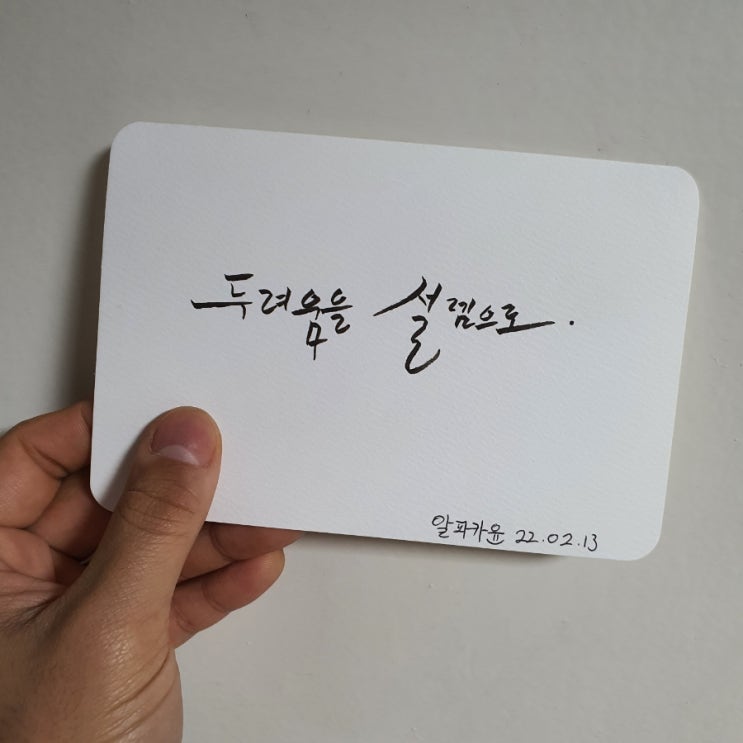 두려움을 설렘으로.
알파카윤 22.02.13